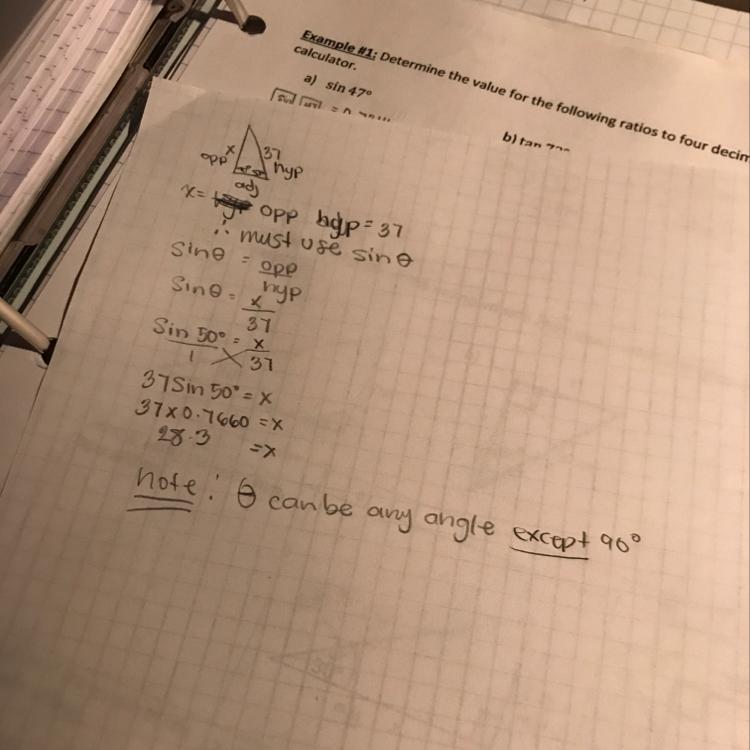 Example #1: Determine the value for the following ratios to four decim
calculator.
a) sin 47°
b) tan
x 37
opp hyp
adj
x = opp hyp = 37
∴ must use sin θ
Sin θ = opp
hyp
Sin θ = x
37
Sin 50° = x
1 37
37 Sin 50° = x
37 x 0.7660 = x
28.3 = x
note: θ can be any angle except 90°